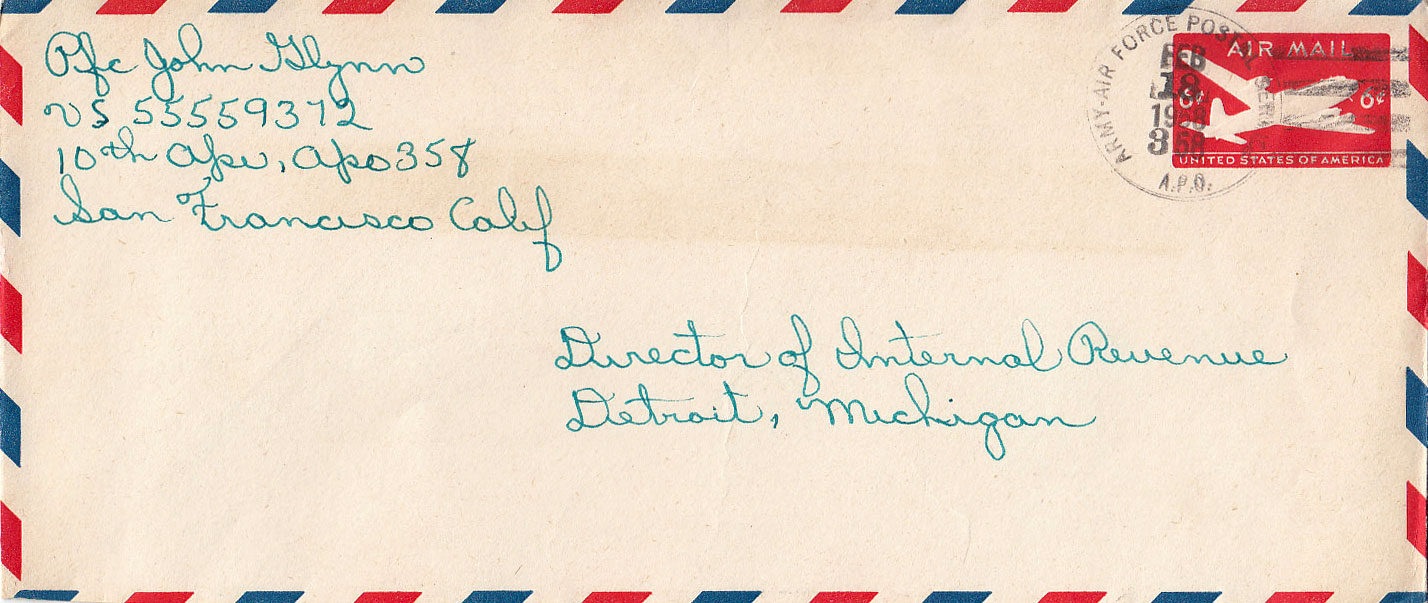 Pfc John Glynn
US 55559372
10th Apu, Apo 358
San Francisco Calif
ARMY-AIR FORCE POSTAL SERVICE
FEB
18
358
A.P.O.
AIR MAIL
6¢ 6¢
UNITED STATES OF AMERICA
Director of Internal Revenue
Detroit, Michigan